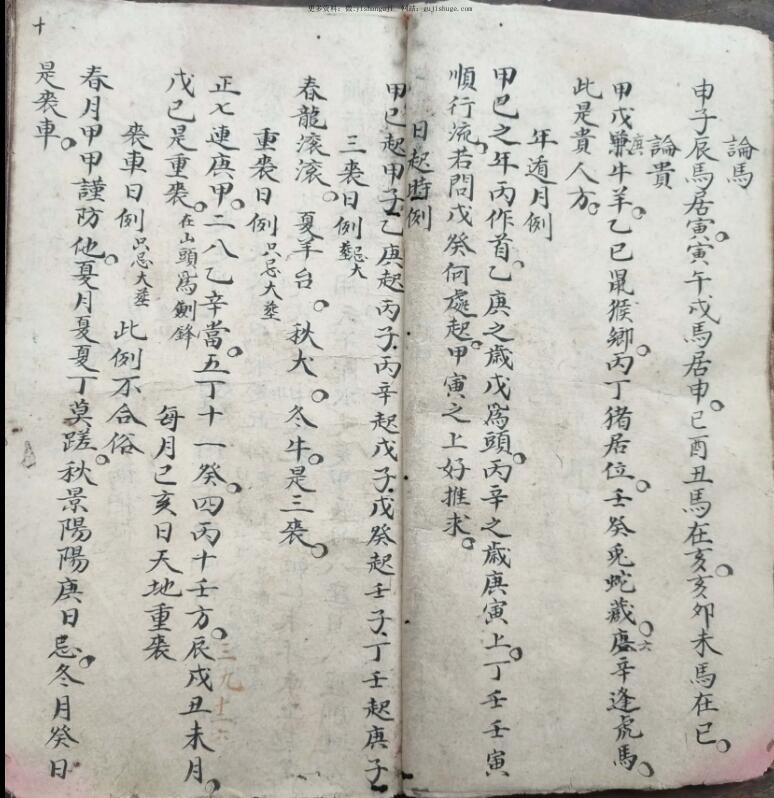 更多资料：微:yishanguji 网站：gujishuge.com
論馬
申子辰馬居寅。寅午戌馬居申。巳酉丑馬在亥。亥卯未馬在巳。
論貴
甲戊庚牛羊。乙己鼠猴鄉。丙丁猪居位。壬癸兎蛇藏。六辛逢虎馬。
此是貴人方。
年遁月例
甲己之年丙作首。乙庚之歲戊爲頭。丙辛之歲庚寅上。丁壬壬寅
順行流。若問戊癸何處起。甲寅之上好推求。
日起時例
甲己起甲子。乙庚起丙子。丙辛起戊子。戊癸起壬子。丁壬起庚子
三喪日例 大
春龍滾滾。夏羊台。秋犬。冬牛。是三喪。
重喪日例 只忌大塟
正七連庚甲。二八乙辛當。五丁十一癸。四丙十壬方。辰戌丑未月。
三九十二六
戊己是重喪。在山頭爲劍鋒 每月己亥日天地重喪
喪車日例 只忌大塟 此例不合俗
春月甲甲謹防他。夏月夏夏丁莫蹉。秋景陽陽庚日忌。冬月癸日
是喪車。
十